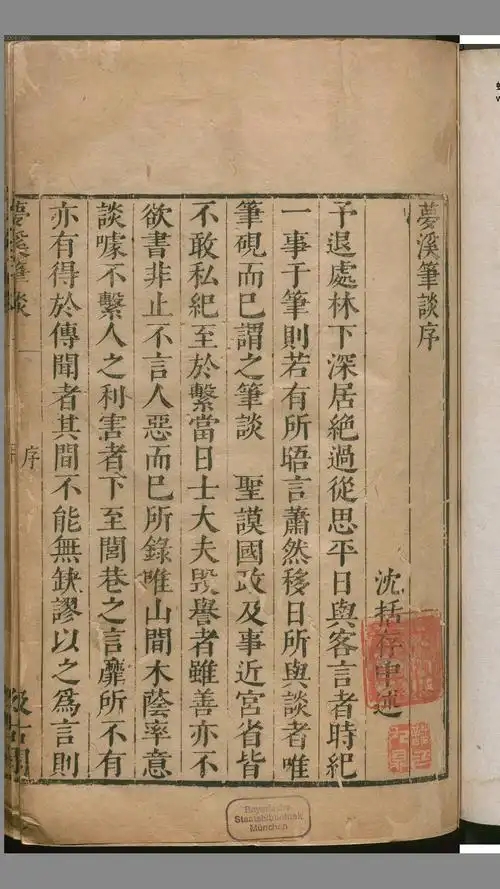 夢溪筆談序
沈括存中述
予退處林下深居絶過從思平日與客言者時紀
一事于筆則若有所晤言蕭然移日所與談者唯
筆硯而已謂之筆談　聖謨國政及事近宮省皆
不敢私紀至於繫當日士大夫毀譽者雖善亦不
欲書非止不言人惡而已所錄唯山間木蔭率意
談噱不繫人之利害者下至閭巷之言靡所不有
亦有得於傳聞者其間不能無缺謬以之爲言則
夢溪筆談
序
汲古閣
Bayerische
Staatsbibliothek
München